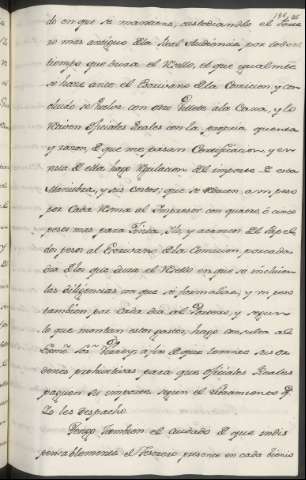 do en que se mantiene, custodiandolo el
mas antiguo de la Real Audiencia, por todo el
tiempo que dura el Resello, el que igualmte
se hace ante el Escrivano de la Comision y con
cluido se buelve, con otro Villete a la Caxa, y lo
Reciven oficiales Reales con la propia quenta
y razon, de que me pasan Certificacion, y en
vista de ella hago Regulacion del importe de esta
Maniobra, y sus costos; que se reducen, a un peso
por Cada Resma al Impresor con quatro ó cinco
pesos mas para Tinta, Ilo, y acarreo del Papel,
dos pesos al Escrivano de la Comision por cada
dia de los que dura el Resello en que se incluien
las diligencias con que se formaliza, y un peso
tambien por cada dia al Portero, y segun
lo que montan estos gastos, hago consulta al
Exmô Sôr Virrey, a fin de que termine sus or
denes para que oficiales Reales
paguen su importe, segun el Libramiento q.
Io les despacho.
Tengo tambien el cuidado de que indis
pensablemente el Tesorero presente en cada Bienio